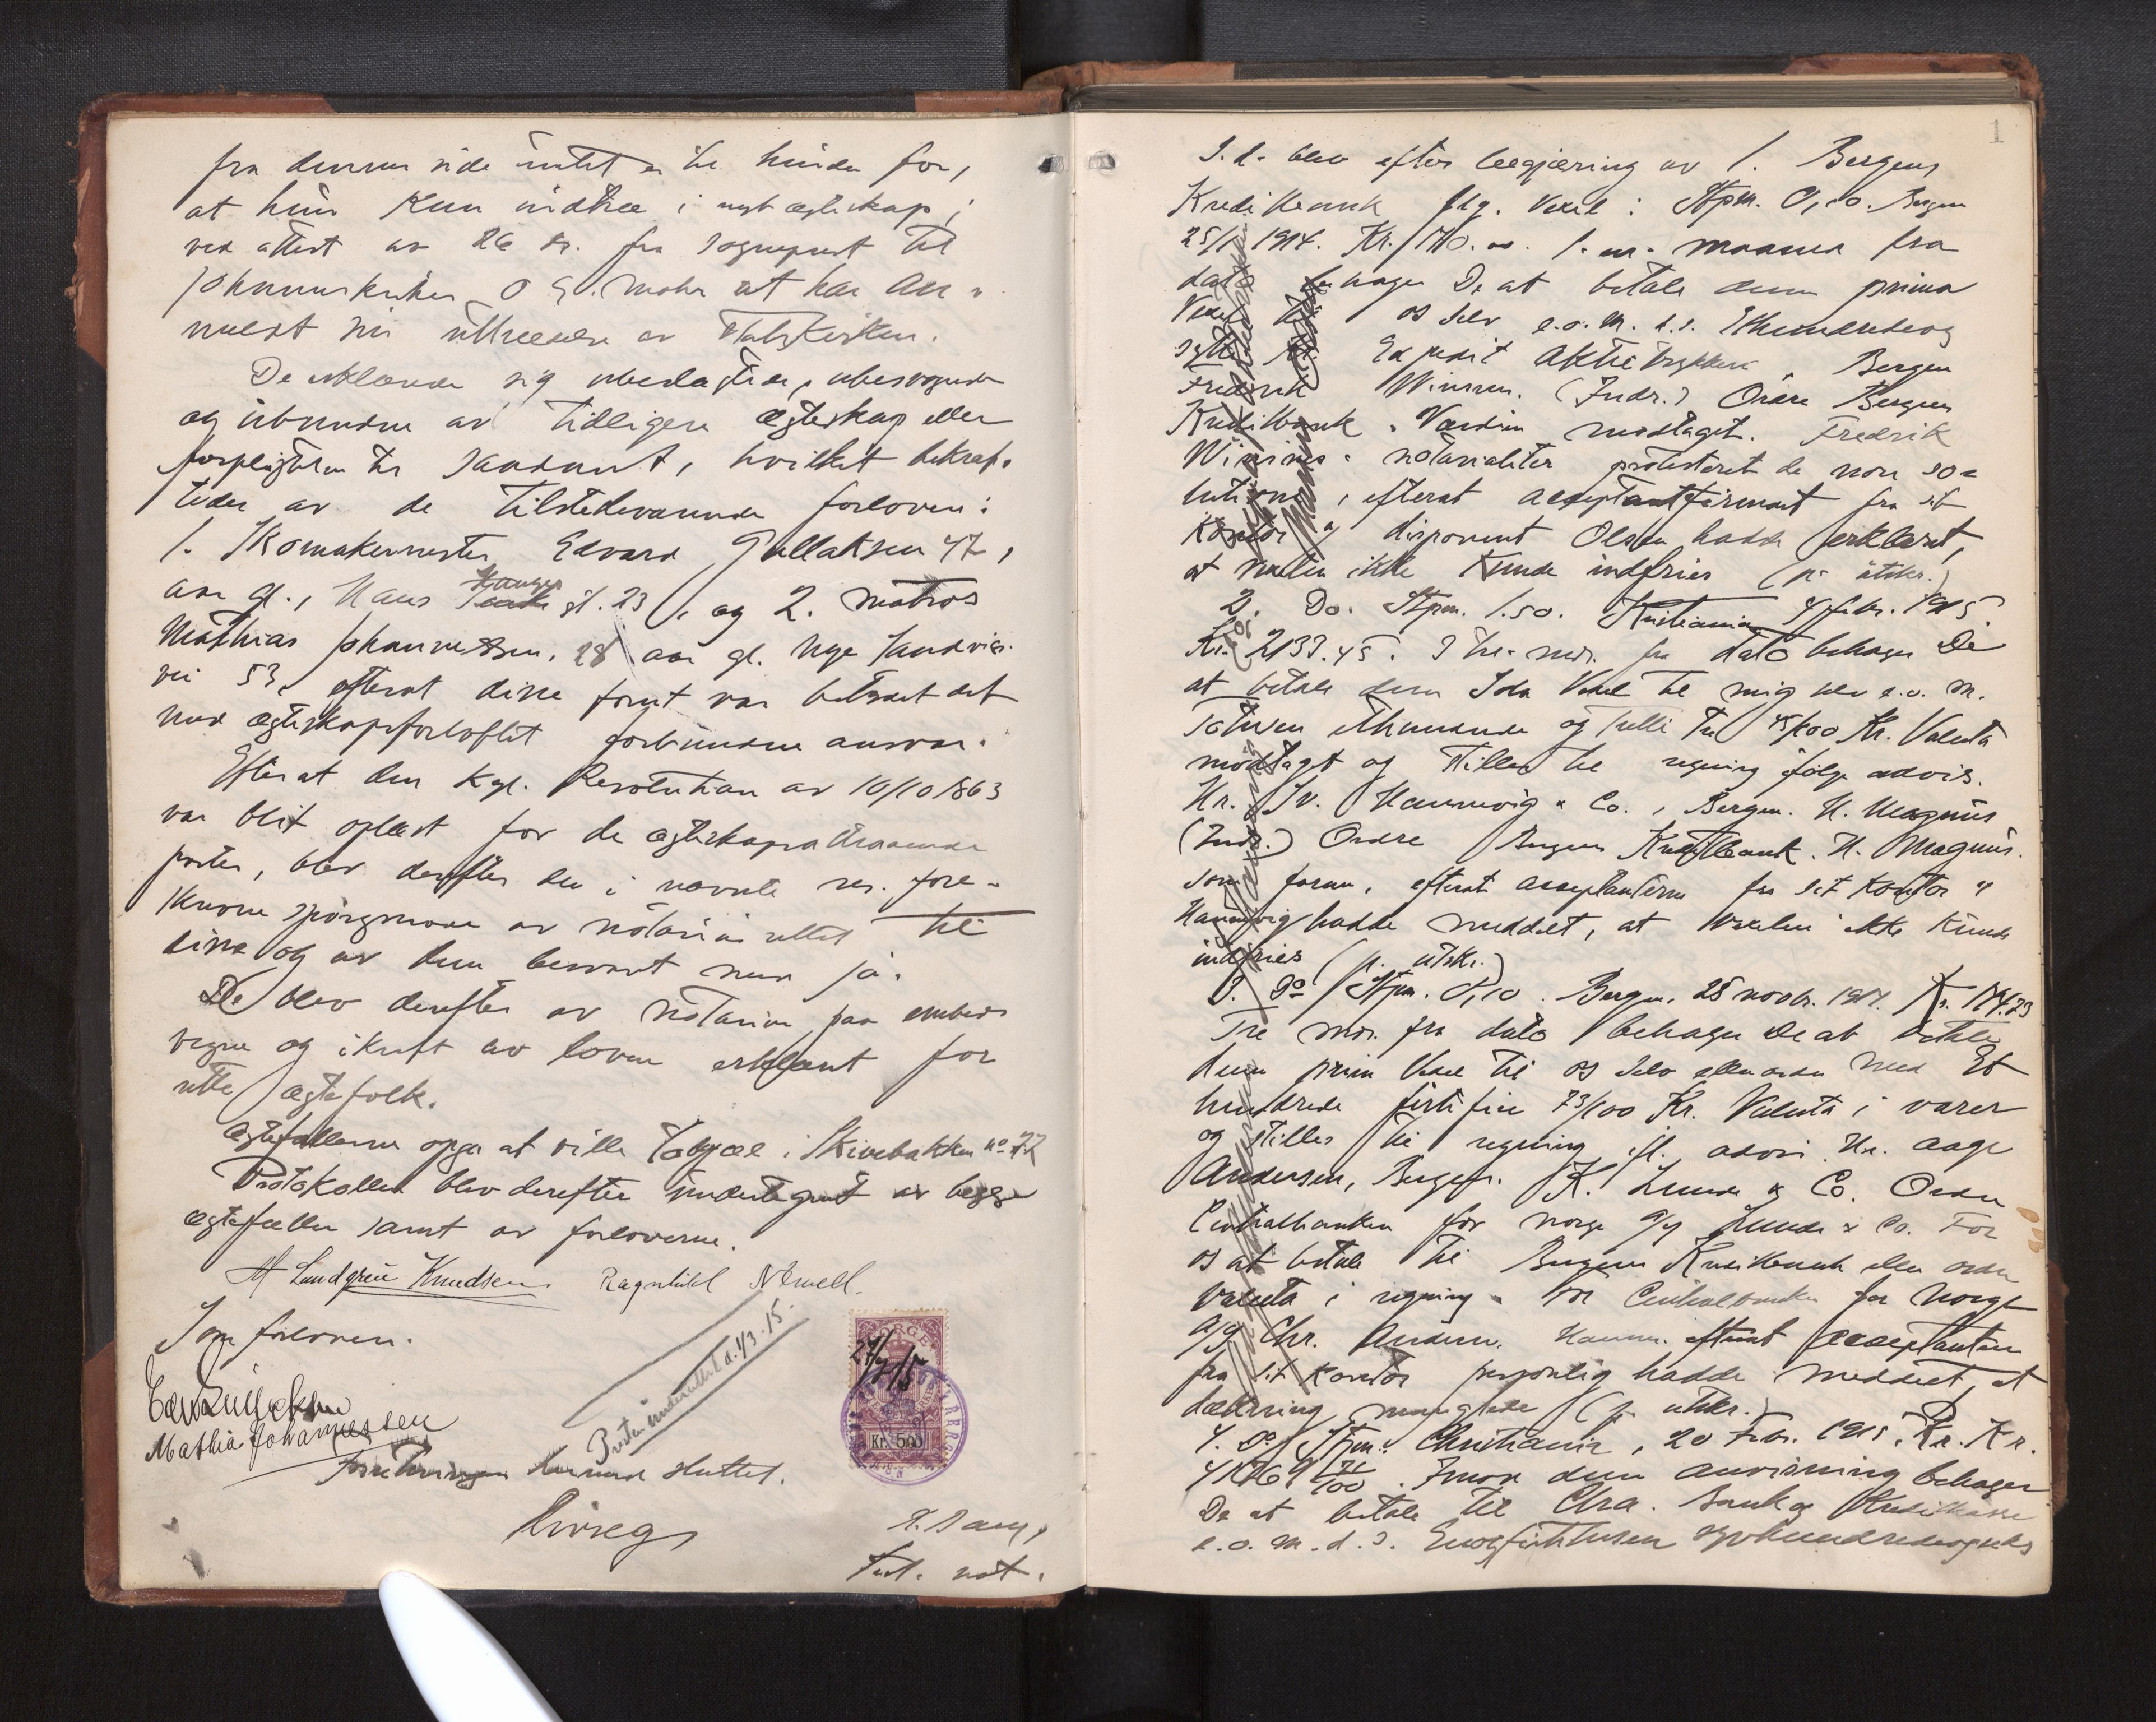 fra dennes side intet er til hinder for,
at hun kan indtræ i nyt ægteskap;
ved attest av 26 ds. fra sogneprest til
Johanneskirken O G. Mohr at ha an-
meldt sin uttrædelse av statskirken.
De erklærede sig ubeslægtede, ubesvogrede
og ubundne av tidligere ægteskap eller
forpligtelse til saadant, hvilket bekræf-
tedes av de tilstedeværende forlovere:
1. Skomakermester Edvard Gullaksen 47,
aar gl., Hans Hauges gt. 23, og 2. Matros
Mathias Johannessen, 28 aar gl. Nye Sandviks-
vei 53, efterat disse forut var betydet det
med ægteskapsforloftet forbundne ansvar.
Efterat den kgl. Resolution av 10/10 1863
var blit oplæst for de ægteskapsattraaende
parter, blev derefter de i nævnte res. fore-
skrevne spörgsmaal av notarius rettet til
disse og av dem besvart med ja.
De blev derefter av notarius paa embeds
vegne og i kraft av loven erklært for
rette ægtefolk.
Ægtefællerne opga at ville ta bopæl i Skivebakken no 22
Protokollen blev derefter undertegnet av begge
ægtefæller samt av forloverne.
M Lundgren Knudsen. Ragnhild Newell.
Som forlovere.
Mathias Johannessen
Presten underrettet d. 1/3. 15.
NORGE
27/2 15
Kr. 5.00
Forretningen dermed sluttet.
ful. not.
1
S. d. blev efter begjæring av 1. Bergens
Kreditbank flg. vexel: Stpm. 0,10. Bergen
25/1 1914. Kr. 170.00. 1. en maaned fra
dato behager De at betale denne prima
Vexel til os selv e.o. m. d. s. Ethundredeog
sytti Kr. Expedit Aktietrykkeri, Bergen
Fredrik Winsnes. (Indr.) Ordre Bergens
Kreditbank. Værdien modtaget. Fredrik
Winsnes. notarialiter protesteret de non so-
lutione, efterat acceptantfirmaet fra sit
Kontor v/ disponent Olsen hadde erklæret,
at vexlen ikke kunde indfries (p. utskr.)
2. Do. Stpm. 1.50. Kristiania 4 febr. 1915
Kr. 2133.45. 3 tre mdr. fra dato behager De
at betale denne Sola Vexel til mig selv e.o. m.
Totusen ethundrede og tretti tre 45/100 Kr. Valuta
modtaget og stilles til regning ifölge advis.
Hr. Iv. Hannevig & Co., Bergen. H. Magnus
(Indr.) Ordre Bergens Kreditbank. H. Magnus.
som foran, efterat acceptanterne fra sit Kontor v/
Hannevig hadde meddelt, at vexelen ikke kunde
indfries (p. utskr.)
3. Do Stpm. 0,10. Bergen, 25 novbr. 1914. Kr. 144.73
Tre mdr. fra dato behager De at betale
denne prima Vexel til os selv eller ordre med Et
hundrede förti fire 73/100 Kr. Valuta i varer
og stilles til regning ifl. advis. Hr. Aage
Andersen, Bergen. K. Lunde & Co. Ordre
Centralbanken for Norge a/s Lunde & Co. For
os at betale til Bergens Kreditbank eller ordre
Valuta i regning. For Centralbanken for Norge
efterat acceptanten
fra sit kontor personlig hadde meddelt, at
dækning manglede (p. utskr.)
4. Do Stpm. Christiania, 20 Febr. 1915. Kr. Kr.
41761 71/100. Imod denne anvisning behager
De at betale til Chra. Bank og Kreditkasse
e.o. m. d. s. Enogförtitusen syvhundredeogseks